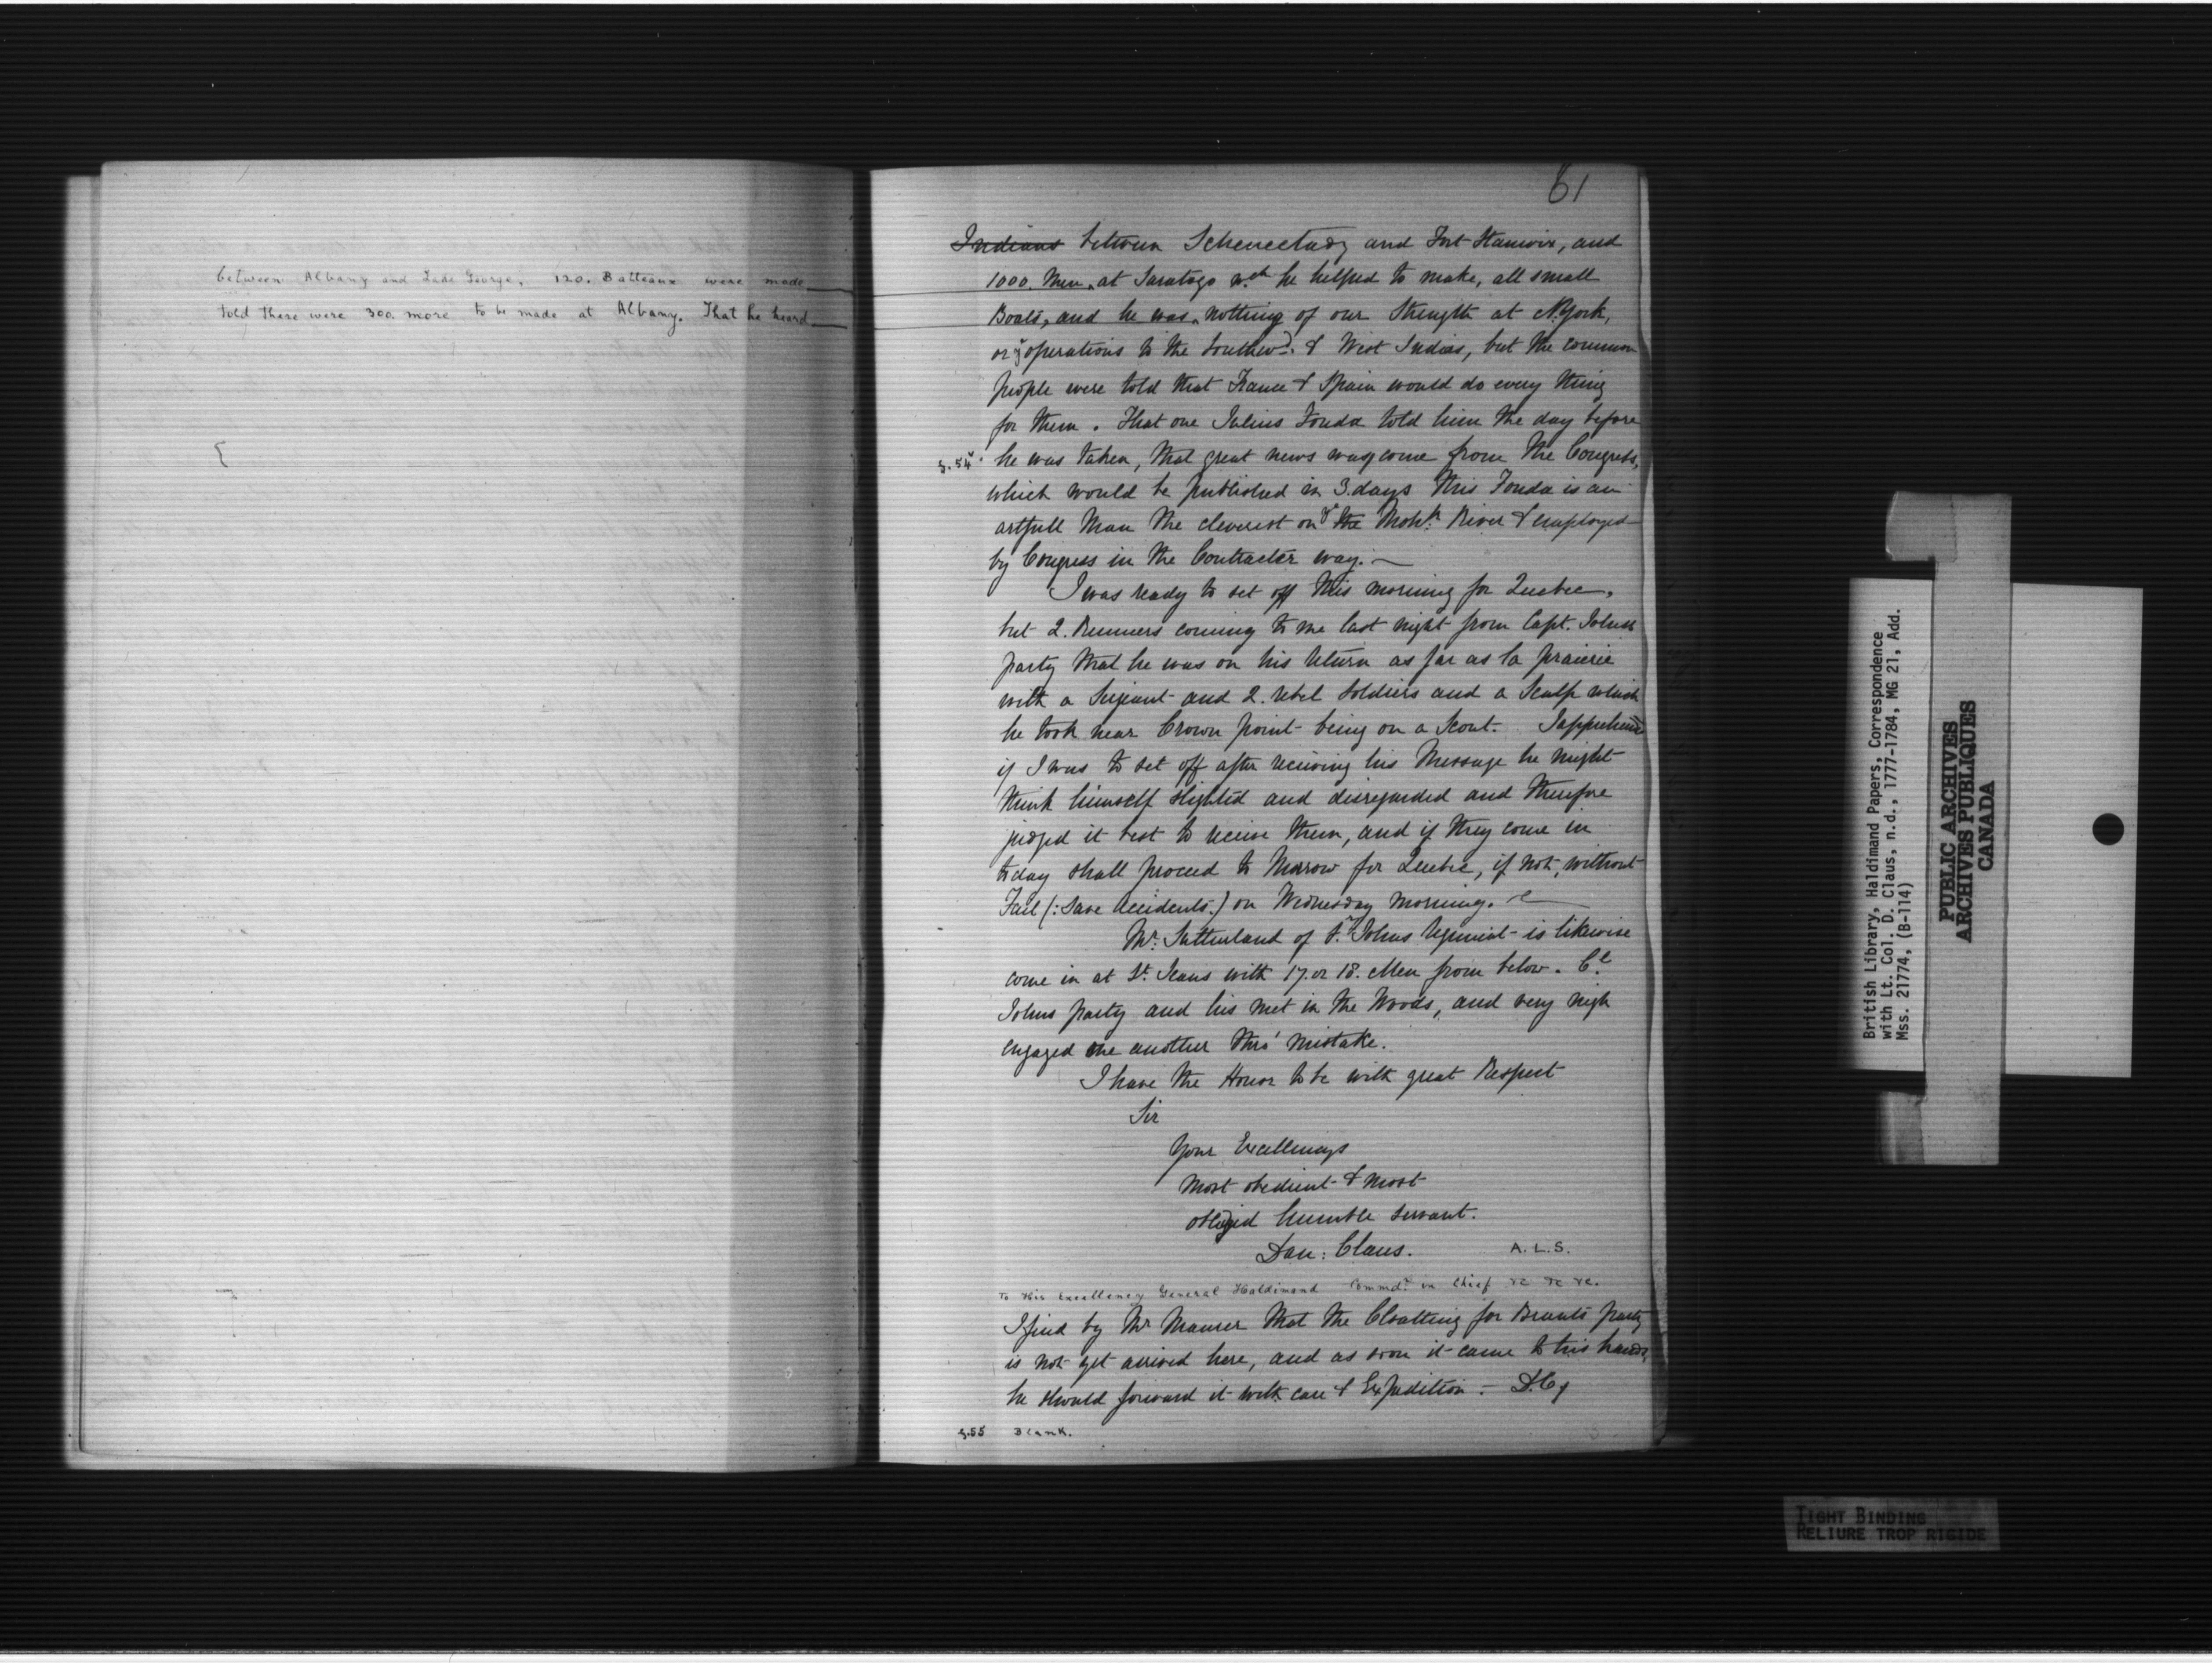 between Albany and Lake George, 120. Batteaux were made
told there were 300. more to be made at Albany. That he heard
61
Indians between Schenectady and Fort Stanwix, and
1000. Men, at Saratogo wch he helped to make, all small
Boats, and he was, nothing of our Strength at N. York,
or ye operations to the Southwd. & West Indies, but the common
people were told that France & Spain would do every thing
for them. That one Julius Fonda told him the day before
f. 54v. he was taken, that great news was come from the Congress,
which would be published in 3. days this Fonda is an
artfull Man the cleverest on ye the Mohk. River & employed
by Congress in the Contracter way. —
I was ready to set off this morning for Quebec,
but 2. Runners coming to me last night from Capt. Johns
party that he was on his return as far as la prairie
with a Serjeant and 2. rebel Soldiers and a Scalp which
he took near Crown point being on a Scout. I apprehend
if I was to set off after receiving his Message he might
think himself slighted and disregarded and therefore
judged it best to receive them, and if they come in
today shall proceed to Morrow for Quebec, if not, without
Fail (: save Accidents :) on Wednesday Morning. —
Mr. Sutherland of Sr. Johns Regiment is likewise
come in at St. Jeans with 17. or 18. Men from below. Ct.
Johns party and his met in the Woods, and very nigh
engaged one another thro' Mistake.
I have the Honor to be with great Respect
Sir
Your Excellencys
Most obedient & most
obliged humble Servant.
Dan: Claus. A.L.S.
To His Excellency General Haldimand Commdr. in Chief &c &c &c.
I find by Mr Maurer that the Cloatting for Brants party
is not yet arrived here, and as soon it came to his hands,
he should forward it with care & Expedition. — D.C,
f. 55 Blank.
British Library, Haldimand Papers, Correspondence
with Lt. Col. D. Claus, n.d., 1777-1784, MG 21, Add.
Mss. 21774, (B-114)
PUBLIC ARCHIVES
ARCHIVES PUBLIQUES
CANADA
TIGHT BINDING
RELIURE TROP RIGIDE